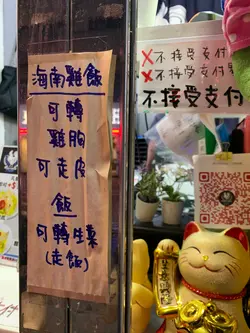 海南雞飯
可轉
雞胸
可走皮
飯
可轉生菜
(走飯)
不接受支付
不接受支付
不接受支付